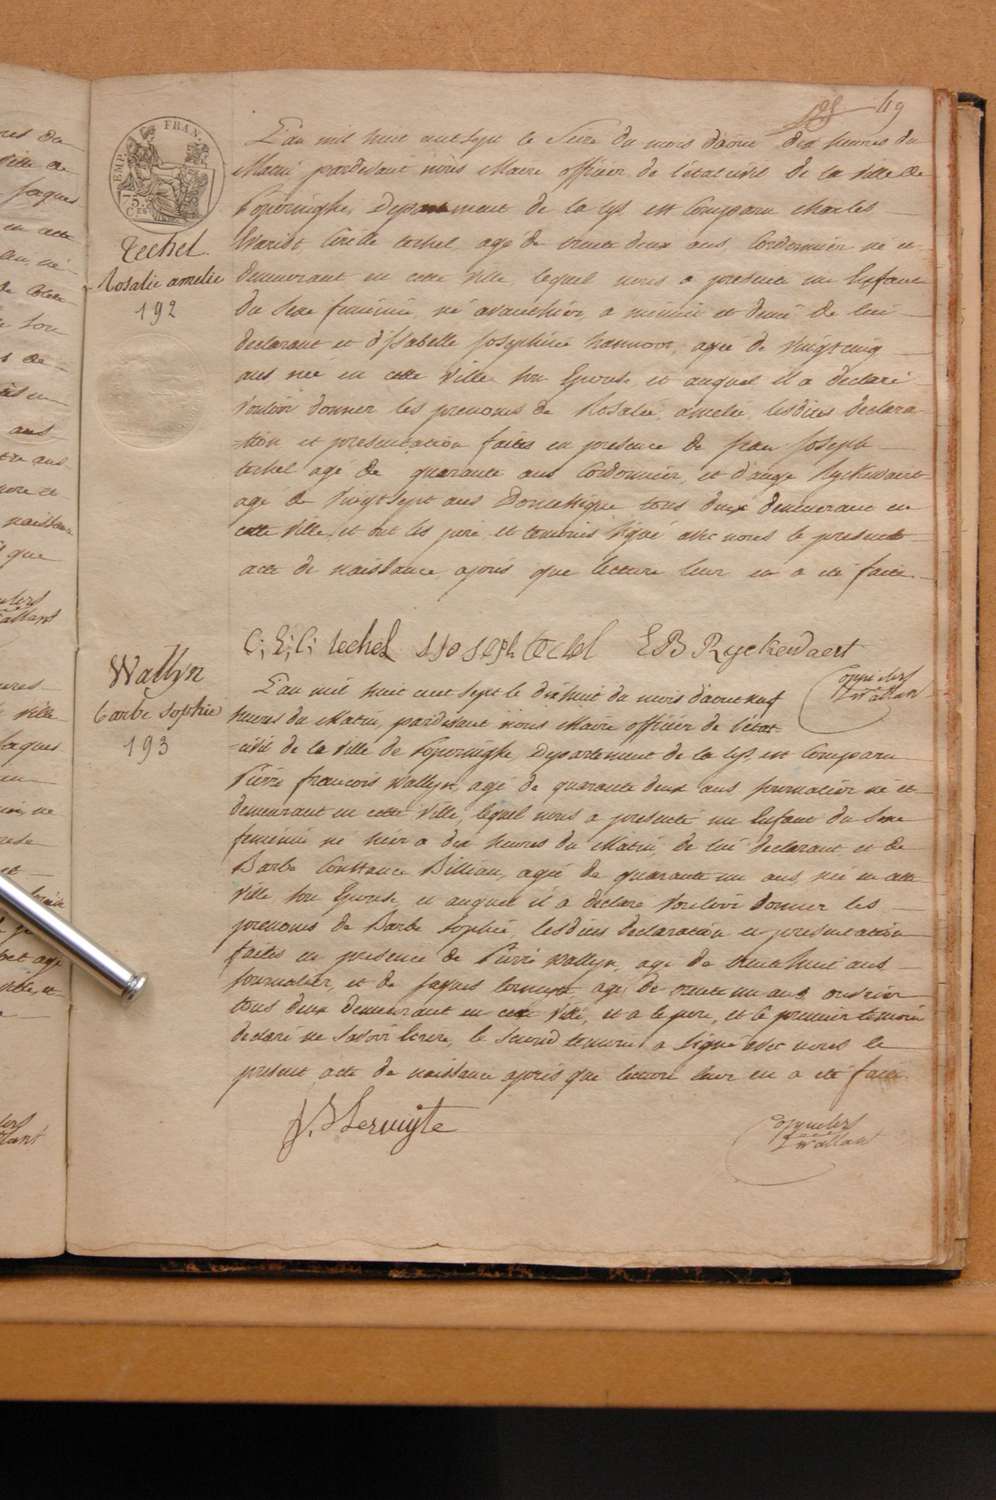 49
EMP. FRAN.
75
Cen
L'an mil huit cent sept le Seize du mois d'aout dix heures du
Matin pardevant nous Maire officier de l'état civil de la ville de
Poperinghe, Departement de la Lys, est Comparu Charles
Cirille techel, agé de trente deux ans, Cordonnier né et
demeurant en cette ville, lequel nous a presenté un Enfant
du Sexe feminin, né avanthier, a minuit et demi de lui
declarant et d'Isabelle Josephine hannoot, agée de Vingtcinq
ans née en cette Ville Son Epouse, et auquel il a declaré
Vouloir donner les prenoms de Rosalie, amelie, lesdites declara-
-tion et presentation faites en presence de jean Joseph
techel agé de quarante ans Cordonnier, et d'ange Ryckewaert
agé de Vingtsept ans Domestique tous deux demeurant en
cette Ville, et ont les pere, et temoins Signé avec nous le present
acte de naissance après que lecture leur en a été faite
techel.
Rosalie amelie
192
C; E; C; techel JJoseph techel E B Ryckewaert
Wallyn
barbe Sophie
193
L'an mil huit cent sept le dixhuit du mois d'aout neuf
heures du Matin, pardevant nous Maire officier de l'état
-civil de la Ville de Poperinghe, Departement de la Lys, est Comparu
Pierre francois Wallyn, agé de quarante deux ans journalier né et
demeurant en cette Ville, lequel nous a presenté un Enfant du Sexe
feminin né hier a dix heures du Matin, de lui declarant et de
Barbe Constance Billiau, agée de quarante un ans, née en cette
Ville Son Epouse, et auquel il a declaré Vouloir donner les
prenoms de Barbe Sophie, lesdites declaration et presentation
faites en presence de Pierre Wallyn, agé de trentehuit ans
journalier, et de jaques agé de trente un ans ouvrier
tous deux demeurant en cette Ville, et a le pere, et le premier temoin
declaré ne Savoir Ecrire, le Second temoin a Signé avec nous le
present acte de naissance après que lecture leur en a été faite.